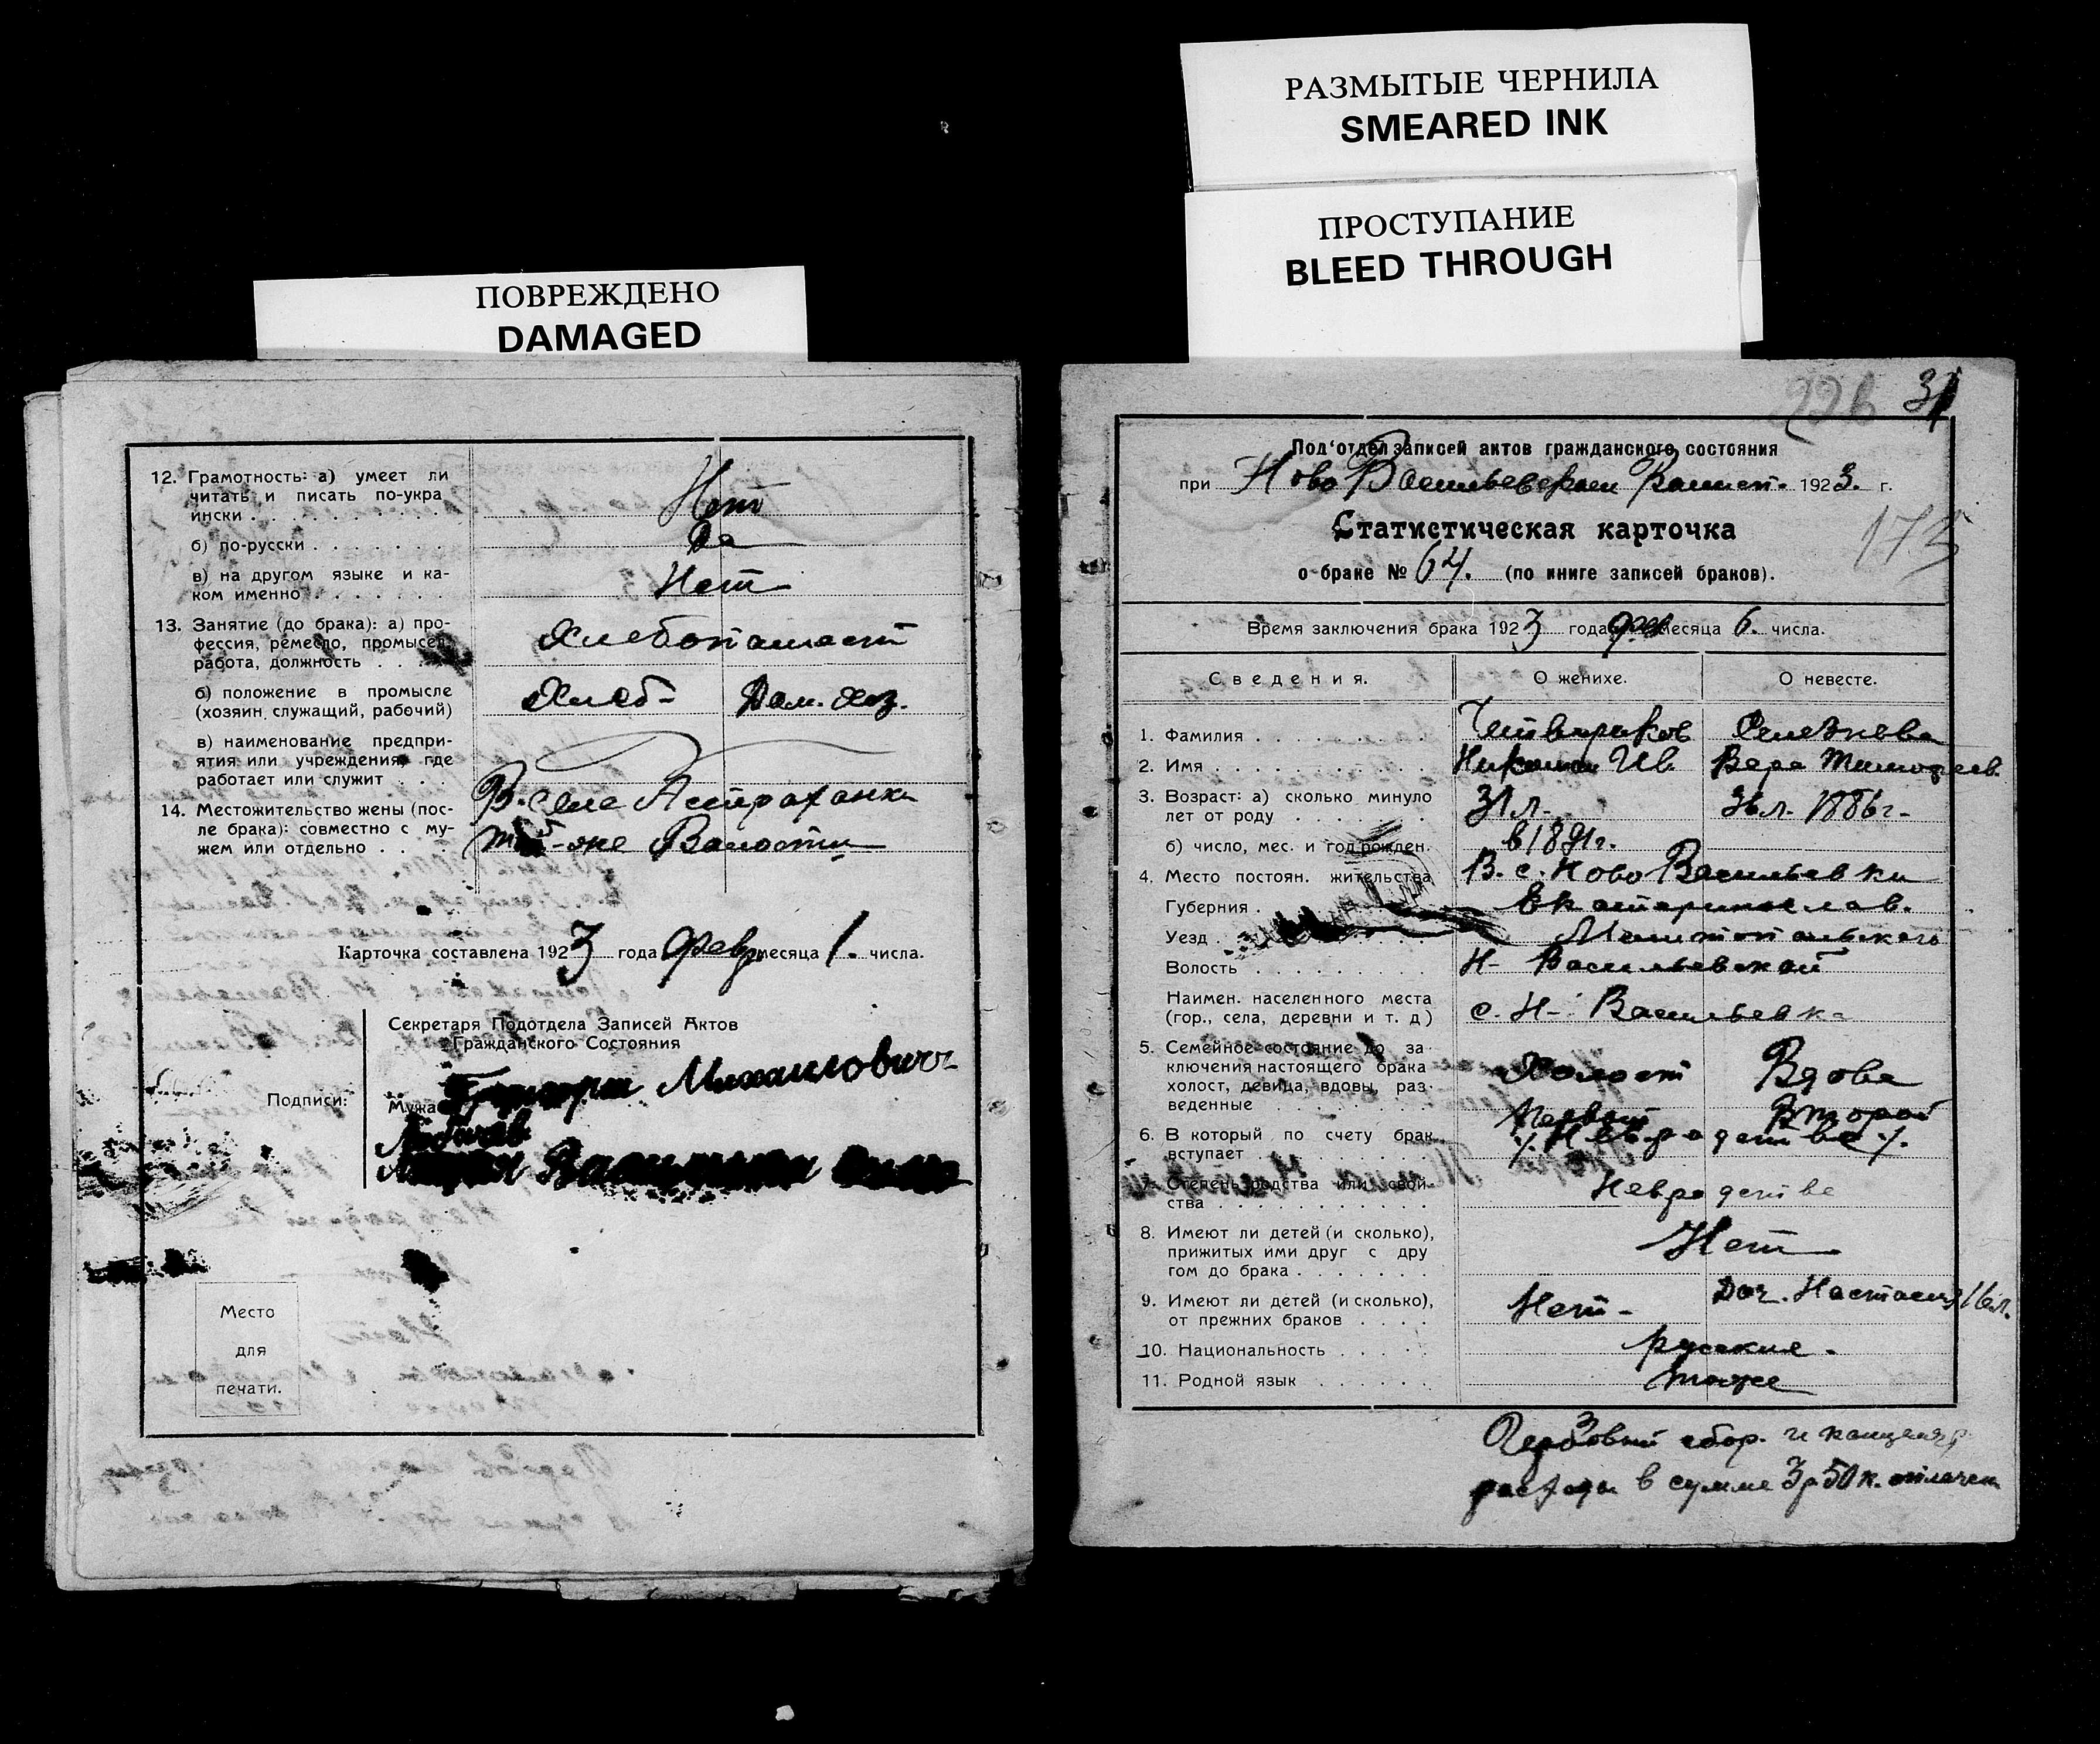 ПОВРЕЖДЕНО
DAMAGED
12. Грамотность: а) умеет ли
читать и писать по-укра
ински . . . Нет
б) по-русски . . . Да
в) на другом языке и ка-
ком именно . . . Нет
13. Занятие (до брака): а) про-
фессия, ремесло, промысел
работа, должность . . . Хлебопашест
б) положение в промысле
(хозяин, служащий, рабочий) Хлеб- Дом. хоз.
в) наименование предпри-
ятия или учреждения, где
работает или служит . . .
14. Местожительство жены (пос-
ле брака): совместно с му-
жем или отдельно . . . В. селе Астраханки
той-же Волости
Карточка составлена 1923 года февр месяца 1. числа.
Секретаря Подотдела Записей Актов
Гражданского Состояния
Подписи: Мужа Григори Михаилович
Место
для
печати.
РАЗМЫТЫЕ ЧЕРНИЛА
SMEARED INK
ПРОСТУПАНИЕ
BLEED THROUGH
226 31
Под'отдел записей актов гражданского состояния
при Ново Васильевском 1923. г.
Статистическая карточка
173
о браке № 64. (по книге записей браков).
Время заключения брака 1923 года фев месяца 6. числа.
Сведения. О женихе. О невесте.
1. Фамилия . . . Четвериков Селезнева
2. Имя . . . Николай Ив. Вера Тимофеев.
3. Возраст: а) сколько минуло
лет от роду . . . 31 л. 36 л. 1886 г-
б) число, мес. и год рожден. в 1891 г.
4. Место постоян. жительства В. с. Ново Васильевки
Губерния . . . Екатеринослав.
Уезд . . . Мелитопольского
Волость . . . Н- Васильевской
Наимен. населенного места
(гор., села, деревни и т. д.) с. Н-Васильевка
5. Семейное состояние до за-
ключения настоящего брака
холост, девица, вдовы, раз-
веденные . . . Холост Вдова
6. В который по счету брак
вступает . . . Первый Второй
·/. Невродстве ·/.
7. Степень родства или свой-
ства . . . Невродстве
8. Имеют ли детей (и сколько),
прижитых ими друг с дру
гом до брака . . . Нет
9. Имеют ли детей (и сколько),
от прежних браков . . . Нет- Доч. Настасия 16 л.
10. Национальность . . . русские.
11. Родной язык . . . тоже
Гербовый сбор. и канцеляр
расходы в сумме 3 р 50 к. оплачен